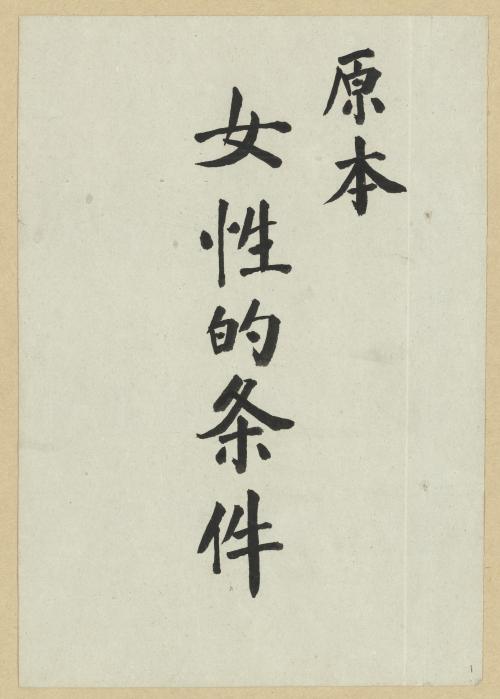 原本
女性的条件